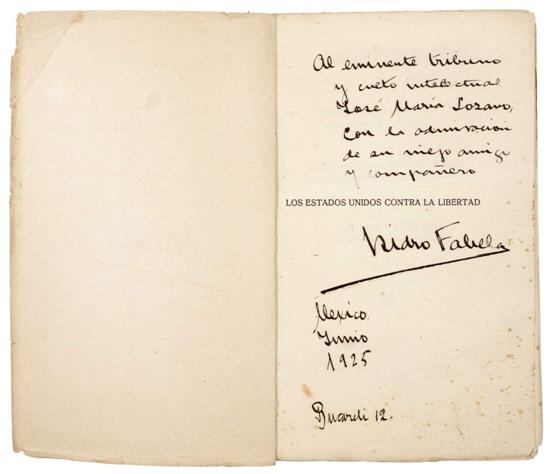 Al eminente tribuno
y culto intelectual
José María Lozano,
con la admiración
de su viejo amigo
y compañero
LOS ESTADOS UNIDOS CONTRA LA LIBERTAD
Isidro Fabela
México
Junio
1925
Bucareli 12.